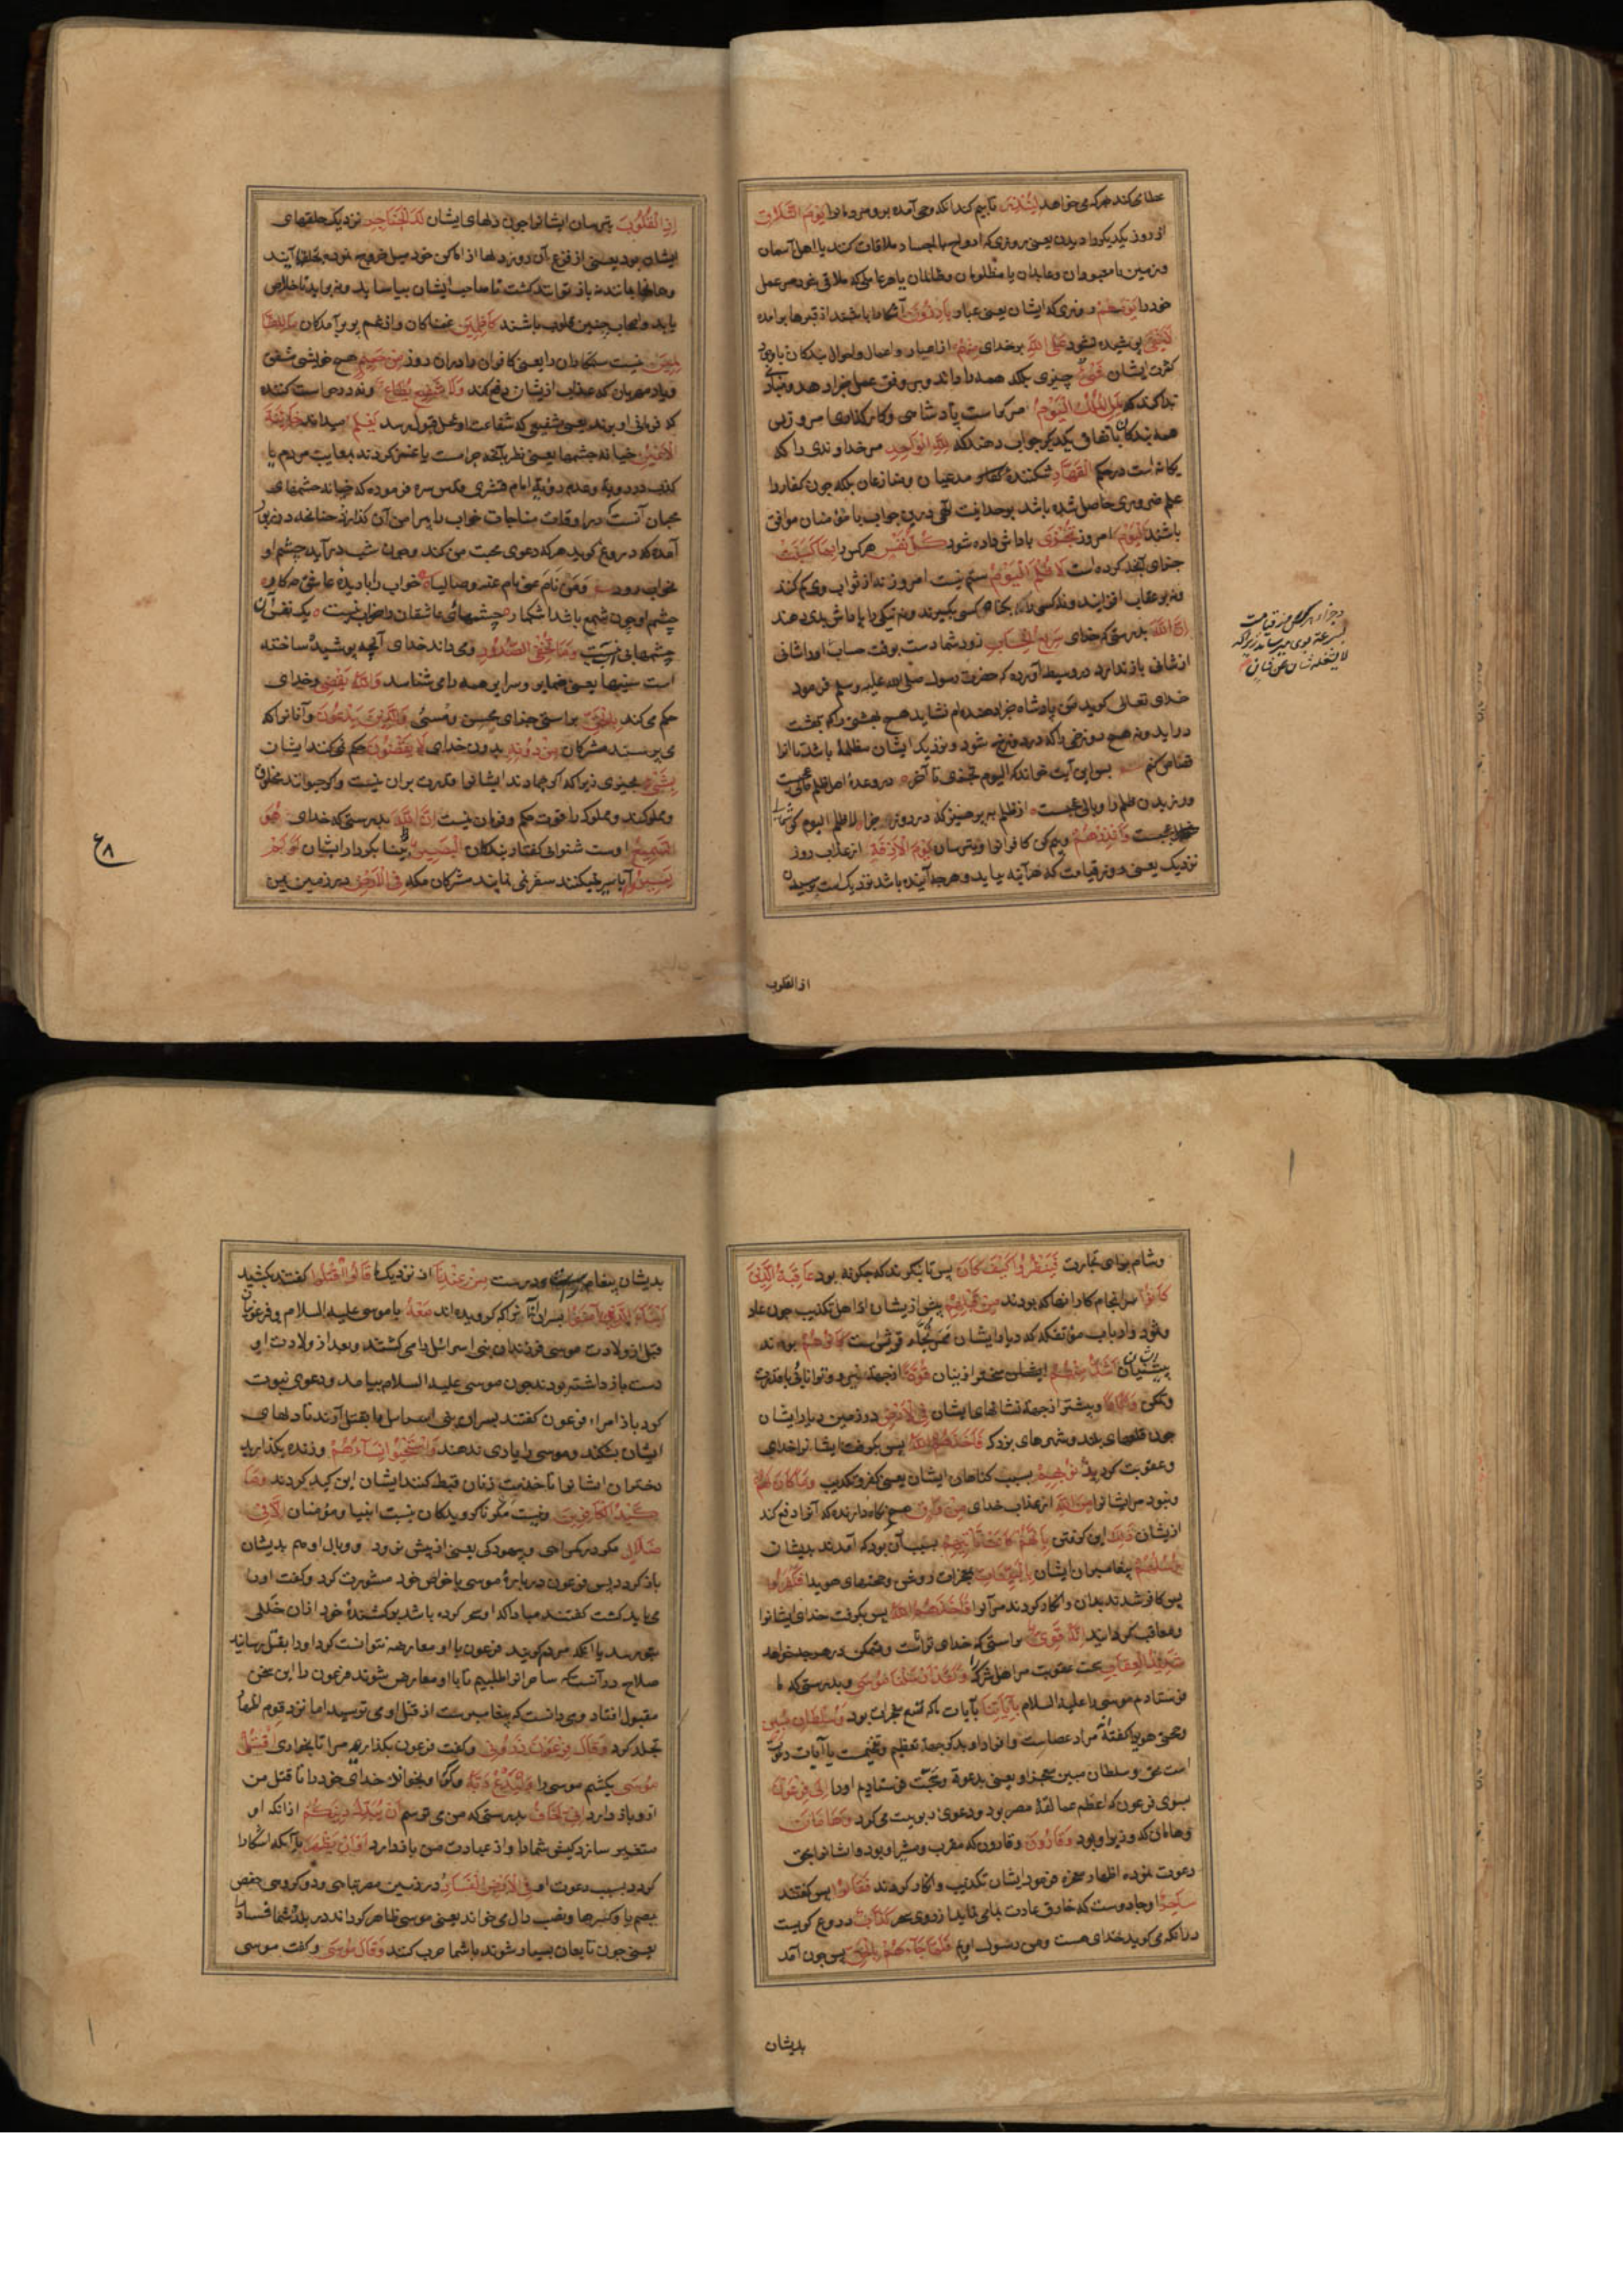 عطا می‌کند هر که می‌خواهد لِيُنْذِرَ تا بیم کند آنکه وحی آمده برو مردمانرا يَوْمَ التَّلَاقِ
از روز یکدیگر را دیدن یعنی روزی که ارواح با اجساد ملاقات کنند یا اهل آسمان
و زمین یا معبودان و عابدان یا مظلومان و ظالمان یا هر عاملی که ملاقی شود هر عمل
خود را يَوْمَ هُمْ روزی که ایشان یعنی عباد بَارِزُونَ آشکارا باشند از قبرها برآمده
لَا يَخْفَى پوشیده نشود عَلَى اللَّهِ بر خدای مِنْهُمْ از اعیان و اعمال و احوال بندگان با وجود
کثرت ایشان شَيْءٌ چیزی بلکه همه را داند و بر وفق عمل جزا دهد و منادی
ندا کند که لِمَنِ الْمُلْكُ الْيَوْمَ مر کراست پادشاهی و کارگذاری امروز پس
همه بندگان باتفاق یکدیگر جواب دهند که لِلَّهِ الْوَاحِدِ مر خداوندی را که
یگانه است در حکم الْقَهَّارِ شکنندهٔ مدعیان و منازعان بلکه چون کفار را
علم ضروری حاصل شده باشد بوحدانیت الهی درین جواب با مؤمنان موافق
باشند الْيَوْمَ امروز تُجْزَى پاداش داده شود كُلُّ نَفْسٍ هر کس را بِمَا كَسَبَتْ
جزای آنچه کرده است لَا ظُلْمَ الْيَوْمَ ستم نیست امروز نه از ثواب وی کم کنند
و نه بر عقاب افزایند و نه کسی را بگناه کسی بگیرند و نه نیکی را پاداش بدی دهند
إِنَّ اللَّهَ بدرستی که خدای سَرِيعُ الْحِسَابِ زود شمار است بوقت حساب او را شانی
از شانی باز ندارد در وسیط آورده که حضرت رسول صلی الله علیه وسلم فرمود
خدای تعالی گوید منم پادشاه جزا دهنده‌ام نشاید هیچ بهشتی را که ببهشت
دراید و نه هیچ دوزخی را که در دوزخ شود و نزدیک ایشان مظلمهٔ باشد تا آنرا
قصاص کنم پس این آیت خواند که الیوم تجزی تا آخر در وعدهٔ اهل ظلم
ورزیدن ظلم را وبالی عجبست از ظلم بپرهیز که در روز جزا لا ظلم الیوم
وَأَنْذِرْهُمْ و بیم کن کافرانرا و بترسان يَوْمَ الْآزِفَةِ از عذاب روز
نزدیک یعنی روز قیامت که هرآینه بیاید و هرچه آینده باشد نزدیک است رسیدن
اذ القلوب
إِذِ الْقُلُوبُ بترسان ایشانرا چون دلهای ایشان لَدَى الْحَنَاجِرِ نزدیک حلقهای
ایشان بود یعنی از فزع آن روز دلها از اماکن خود میل خروج نموده بحلقها آیند
و همانجا بمانند نه باز توانند گشت تا صاحب ایشان بیاساید و نه برآید تا خلاص
یابد و اصحاب چنین قلوب باشند كَاظِمِينَ غمناکان و از غم پر برآمدگان مَا لِلظَّا
لِمِينَ نیست ستمکاران را یعنی کافران را دران روز مِنْ حَمِيمٍ هیچ خویشی مشفق
و یار مهربان که عذاب ازیشان دفع کند وَلَا شَفِيعٍ يُطَاعُ و نه درخواست کننده
که فرمانی او برند یعنی شفیعی که شفاعت او محل قبول رسد يَعْلَمُ میداند خَائِنَةَ
الْأَعْيُنِ خیانت چشمها یعنی نظر بآنچه حرامست یا غمز کردن به معایب مردم یا
کذب در رویة و عدم رویة امام قشیری قدس سره فرموده که خیانت چشمهای
محبان آنست که در اوقات مناجات خواب را پیرامن آن گذارند چنانچه در زبور
آمده که دروغ گوید هر که دعوی محبت من کند و چون شب درآید چشم او
بخواب رود وَمَن نَامَ عینی
خواب را با دیدهٔ عاشق چه کار
چشم او چون شمع باشد اشکبار
وَمَا تُخْفِي الصُّدُورُ و می داند خدای آنچه پوشیده ساخته
است سینها یعنی ضمایر و سرایر همه را می شناسد وَاللَّهُ يَقْضِي و خدای
حکم می کند بِالْحَقِّ براستی جزای محسن و مسئ وَالَّذِينَ يَدْعُونَ و آنانرا که
می پرستند مشرکان مِنْ دُونِهِ بدون خدای لَا يَقْضُونَ حکم نمی کنند ایشان
بِشَيْءٍ بچیزی زیرا که اگر جمادند ایشانرا قدرت بران نیست و اگر حیوانند مخلوق
و مملوکند و مملوک را قوت حکم و فرمان نیست إِنَّ اللَّهَ بدرستی که خدای هُوَ
السَّمِيعُ اوست شنوای گفتار بندگان الْبَصِيرُ بینا بکردار ایشان أَوَلَمْ
يَسِيرُوا آیا سیر نمیکنند سفر نمی نمایند مشرکان مکه فِي الْأَرْضِ در زمین یمن
و شام برای تجارت فَيَنْظُرُوا كَيْفَ كَانَ پس تا بنگرند که چگونه بود عَاقِبَةُ الَّذِينَ
كَانُوا سرانجام کار آنها که بودند مِنْ قَبْلِهِمْ پیش ازیشان از اهل تکذیب چون عاد
و ثمود و ارباب مؤتفکه که دیار ایشان ممر تجار قریش است كَانُوا هُمْ بودند
پیشینیان أَشَدَّ مِنْهُمْ سخت‌تر ازینان قُوَّةً از جهت نیرو و توانایی یا قدرت
و تمکن وَآثَارًا و بیشتر از جهت نشانهای ایشان فِي الْأَرْضِ در زمین دیار ایشان
چون قلعهای بلند و شهرهای بزرگ فَأَخَذَهُمُ اللَّهُ پس بگرفت ایشانرا خدای
و عقوبت کرد بِذُنُوبِهِمْ بسبب گناهان ایشان یعنی کفر و تکذیب وَمَا كَانَ لَهُمْ
و نبود مر ایشانرا مِنَ اللَّهِ از عذاب خدای مِنْ وَاقٍ هیچ نگاه دارنده که آنرا دفع کند
ازیشان ذَلِكَ این گرفتن بِأَنَّهُمْ كَانَتْ تَأْتِيهِمْ بسبب آن بود که آمدند بدیشان
رُسُلُهُمْ پیغامبران ایشان بِالْبَيِّنَاتِ بمعجزات روشن و حجتهای هویدا فَكَفَرُوا
پس کافر شدند بدان و انکار کردند مر آنرا فَأَخَذَهُمُ اللَّهُ پس بگرفت خدای ایشانرا
و معاقب گردانید إِنَّهُ قَوِيٌّ براستی که خدای تواناست و متمکن در هر چه خواهد
شَدِيدُ الْعِقَابِ سخت عقوبت مر اهل شرک را وَلَقَدْ أَرْسَلْنَا مُوسَى و بدرستی که ما
فرستادیم موسی را علیه السلام بِآيَاتِنَا بآیات ما که تسع معجزات بود وَسُلْطَانٍ مُبِينٍ
و حجتی هویدا گفته‌اند مراد عصاست و افراد او بذکر جهة تعظیم و تفخیمست یا آیات دعوت
است بحق و سلطان مبین معجزه او یعنی بدعوة و حجت فرستادیم او را إِلَى فِرْعَوْنَ
بسوی فرعون که اعظم عمالقهٔ مصر بود و دعوی ربوبیت می کرد وَهَامَانَ
و هامان که وزیر او بود وَقَارُونَ و قارون که مقرب و مشیر او بود و ایشانرا بحق
دعوت نموده اظهار معجزه فرمود ایشان تکذیب و انکار کردند فَقَالُوا پس گفتند
سَاحِرٌ او جادوست که خارق عادت بما می نماید از روی سحر كَذَّابٌ دروغ گویست
در آنکه می گوید خدای هست و من رسول اویم فَلَمَّا جَاءَهُمْ بِالْحَقِّ پس چون آمد
بدیشان
بدیشان پیغام درست مِنْ عِنْدِنَا از نزدیک ما قَالُوا اقْتُلُوا گفتند بکشید
أَبْنَاءَ الَّذِينَ آمَنُوا پسران آنانرا که گرویده‌اند مَعَهُ با موسی علیه السلام و فرعونیان
قبل از ولادت موسی فرزندان بنی اسرائیل را می کشتند و بعد از ولادت او
دست باز داشته بودند چون موسی علیه السلام بیامد و دعوی نبوت
کرد باز امراء فرعون گفتند پسران بنی اسرائیل را بقتل آرند تا دلهای
ایشان بشکند و موسی را یاری ندهند وَاسْتَحْيُوا نِسَاءَهُمْ و زنده بگذارید
دختران ایشانرا تا خدمت زنان قبط کنند ایشان این کید کردند وَمَا
كَيْدُ الْكَافِرِينَ و نیست مکر ناگرویدگان نسبت انبیا و مؤمنان إِلَّا فِي
ضَلَالٍ مگر در گمراهی و بیهودگی یعنی از پیش نرود و وبال او هم بدیشان
باز گردد پس فرعون دربارهٔ موسی با خواص خود مشورت کرد و گفت او را
می باید کشت گفتند مبادا که او سحر کرده باشد بر کشندهٔ خود ازان خللی
بتو رسد یا آنکه مردم گویند فرعون با او معارضه نتوانست کرد او را بقتل رسانید
صلاح در آنست که ساحرانرا طلبیم تا با او معارض شوند فرعون را این سخن
مقبول افتاد و می دانست که پیغامبرست از قتل او می ترسید اما نزد قوم اظهار
تجلد کرد وَقَالَ فِرْعَوْنُ ذَرُونِي و گفت فرعون بگذارید مرا تا بخواری أَقْتُلْ
مُوسَى بکشم موسی را وَلْيَدْعُ رَبَّهُ و گو بخواند خدای خود را تا قتل من
ازو باز دارد إِنِّي أَخَافُ بدرستی که من می ترسم أَنْ يُبَدِّلَ دِينَكُمْ از آنکه او
متغیر سازد کیش شما را و از عبادت من باز دارد أَوْ أَنْ يُظْهِرَ یا آنکه آشکارا
گردد بسبب دعوت او فِي الْأَرْضِ الْفَسَادَ در زمین مصر تباهی
یعنی موسی ظاهر گرداند در بلدهٔ شما فساد را
یعنی چون تابعان بسیار شوند با شما حرب کنند وَقَالَ مُوسَى و گفت موسی